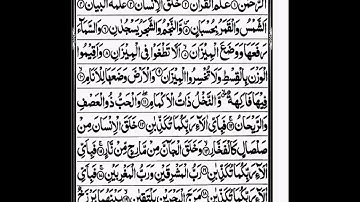 اَلرَّحْمٰنُ ۙ﴿۱﴾ عَلَّمَ الْقُرْاٰنَ ؕ﴿۲﴾ خَلَقَ الْاِنْسَانَ ۙ﴿۳﴾ عَلَّمَهُ الْبَيَانَ ﴿۴﴾
اَلشَّمْسُ وَ الْقَمَرُ بِحُسْبَانٍ ﴿۵﴾ وَّ النَّجْمُ وَ الشَّجَرُ يَسْجُدٰنِ ﴿۶﴾ وَ السَّمَآءَ
رَفَعَهَا وَ وَضَعَ الْمِيْزَانَ ۙ﴿۷﴾ اَلَّا تَطْغَوْا فِى الْمِيْزَانِ ﴿۸﴾ وَ اَقِيْمُوا
الْوَزْنَ بِالْقِسْطِ وَ لَا تُخْسِرُوا الْمِيْزَانَ ﴿۹﴾ وَ الْاَرْضَ وَضَعَهَا لِلْاَنَامِ ۙ﴿۱۰﴾
فِيْهَا فَاكِهَةٌ ۪ۙ وَّ النَّخْلُ ذَاتُ الْاَكْمَامِ ۖ﴿۱۱﴾ وَ الْحَبُّ ذُو الْعَصْفِ
وَ الرَّيْحَانُ ۚ﴿۱۲﴾ فَبِاَىِّ اٰلَآءِ رَبِّكُمَا تُكَذِّبٰنِ ﴿۱۳﴾ خَلَقَ الْاِنْسَانَ مِنْ
صَلْصَالٍ كَالْفَخَّارِ ۙ﴿۱۴﴾ وَ خَلَقَ الْجَآنَّ مِنْ مَّارِجٍ مِّنْ نَّارٍ ۚ﴿۱۵﴾ فَبِاَىِّ
اٰلَآءِ رَبِّكُمَا تُكَذِّبٰنِ ﴿۱۶﴾ رَبُّ الْمَشْرِقَيْنِ وَ رَبُّ الْمَغْرِبَيْنِ ۚ﴿۱۷﴾ فَبِاَىِّ
اٰلَآءِ رَبِّكُمَا تُكَذِّبٰنِ ﴿۱۸﴾ مَرَجَ الْبَحْرَيْنِ يَلْتَقِيٰنِ ۙ﴿۱۹﴾ بَيْنَهُمَا بَرْزَخٌ